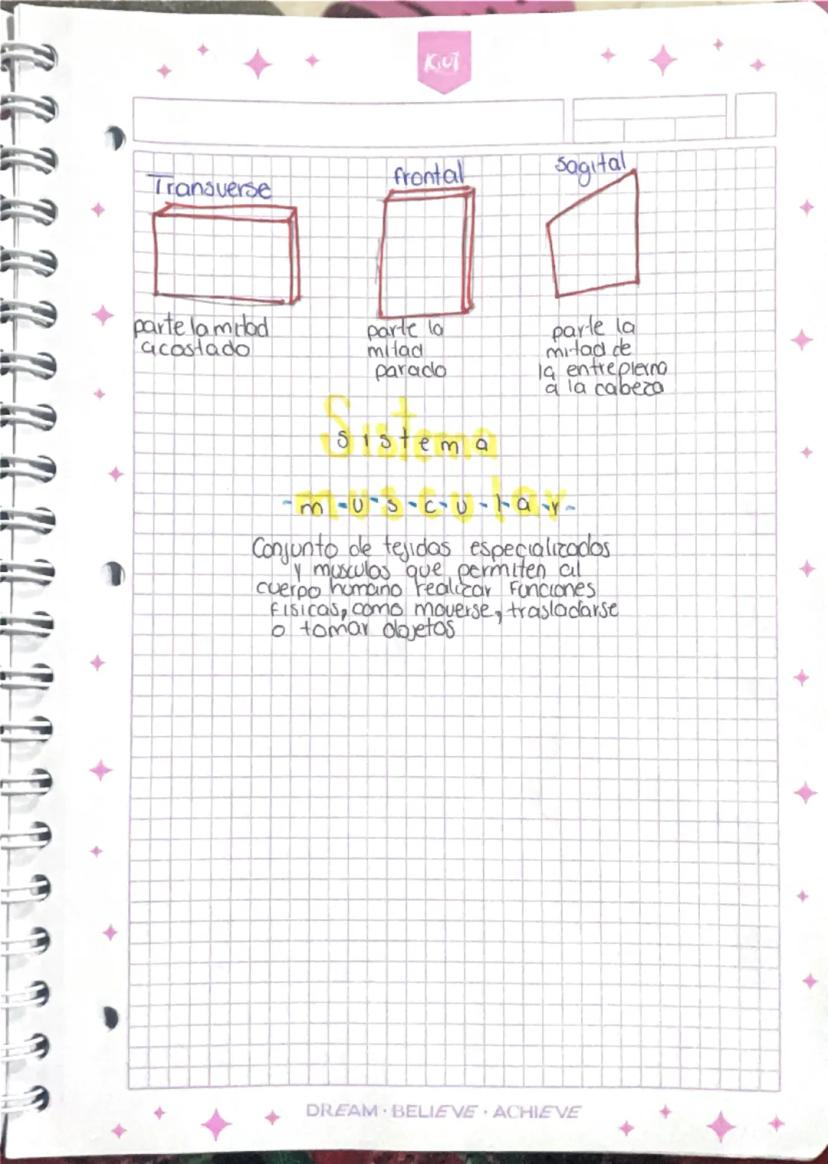 KiUT
Transverse
frontal
sagital
parte la mitad
acostado
parte la
mitad
parado
parte la
mitad de
la entrepierna
a la cabeza
Sistema
sistema
muscular
-m-u-s-c-u-l-a-r-
Conjunto de tejidos especializados
y musculos que permiten al
cuerpo humano realizar funciones
fisicas, como moverse, trasladarse
o tomar objetos
DREAM · BELIEVE · ACHIEVE